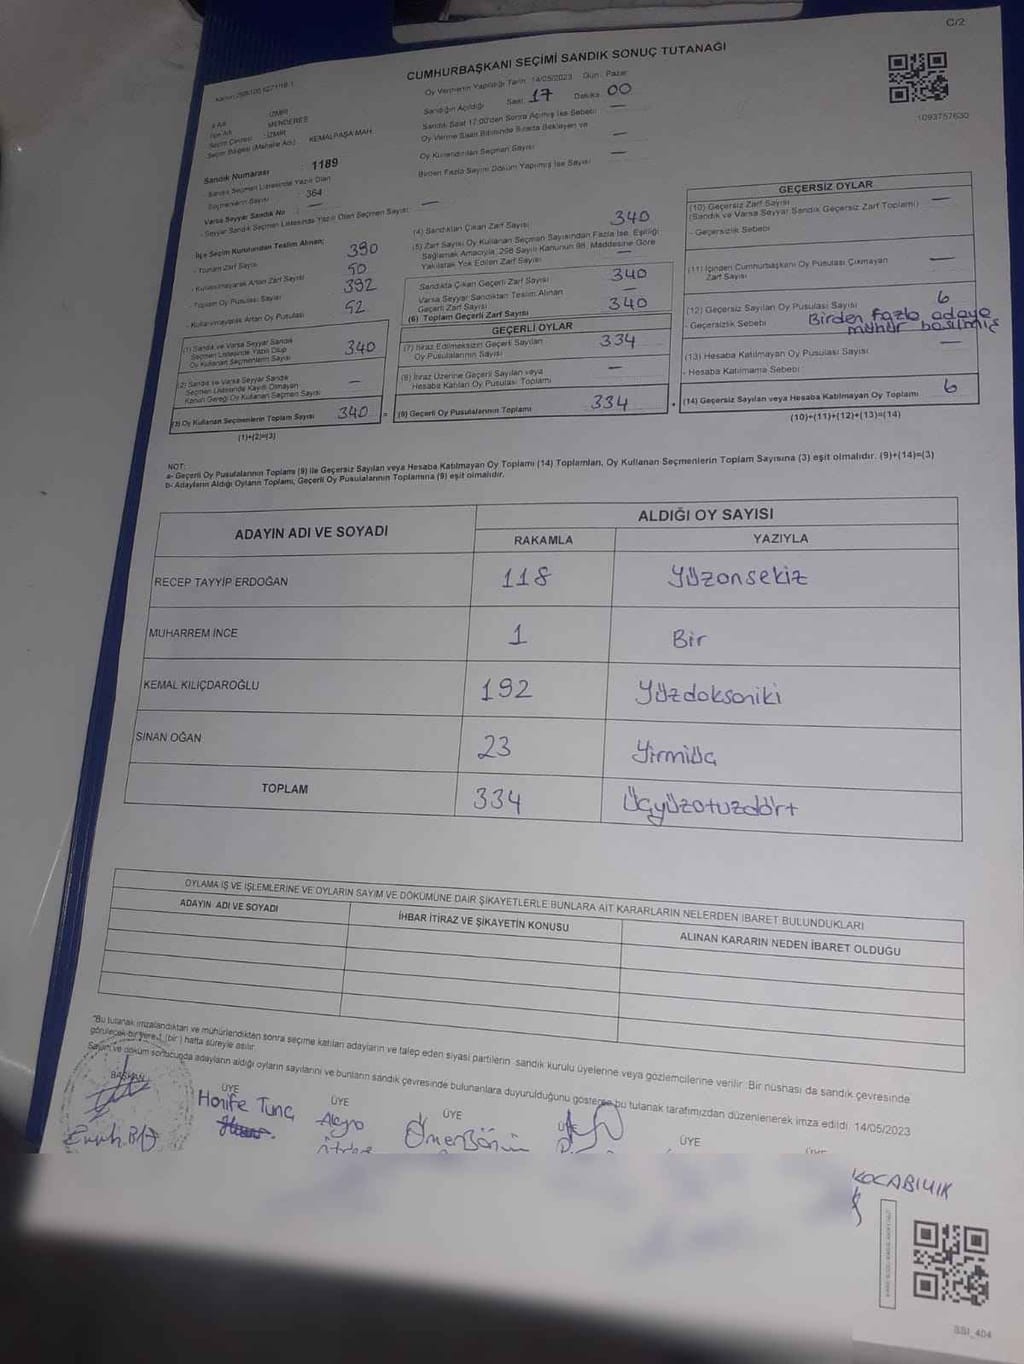 C/2
CUMHURBAŞKANI SEÇİMİ SANDIK SONUÇ TUTANAĞI
Oy Vermenin Yapıldığı Tarih : 14/05/2023 Gün : Pazar
Sandığın Açıldığı Saat 17 Dakika 00
Sandık Saat 17:00'den Sonra Açılmış İse Sebebi —
Oy Verme Saati Bitiminde Sırada Bekleyen ve
Oy Kullandırılan Seçmen Sayısı —
Birden Fazla Sayım Döküm Yapılmış İse Sayısı —
1093757630
İZMİR
MENDERES
Seçim Çevresi : İZMİR
KEMALPAŞA MAH.
Sandık Numarası : 1189
Sandık Seçmen Listesinde Yazılı Olan
Seçmenlerin Sayısı : 364
Varsa Seyyar Sandık No : —
- Seyyar Sandık Seçmen Listesinde Yazılı Olan Seçmen Sayısı : —
İlçe Seçim Kurulundan Teslim Alınan;
- Toplam Zarf Sayısı 390
- Kullanılmayarak Artan Zarf Sayısı 50
- Toplam Oy Pusulası Sayısı 392
- Kullanılmayarak Artan Oy Pusulası 52
(1) Sandık ve Varsa Seyyar Sandık
Seçmen Listesinde Yazılı Olup
Oy Kullanan Seçmenlerin Sayısı 340
(2) Sandık ve Varsa Seyyar Sandık
Seçmen Listesinde Kayıtlı Olmayan
Kanun Gereği Oy Kullanan Seçmen Sayısı —
(3) Oy Kullanan Seçmenlerin Toplam Sayısı 340
(1)+(2)=(3)
(4) Sandıktan Çıkan Zarf Sayısı 340
(5) Zarf Sayısı Oy Kullanan Seçmen Sayısından Fazla İse, Eşitliği
Sağlamak Amacıyla, 298 Sayılı Kanunun 98. Maddesine Göre
Yakılarak Yok Edilen Zarf Sayısı —
Sandıkta Çıkan Geçerli Zarf Sayısı 340
Varsa Seyyar Sandıktan Teslim Alınan
Geçerli Zarf Sayısı —
(6) Toplam Geçerli Zarf Sayısı 340
GEÇERLİ OYLAR
(7) İtiraz Edilmeksizin Geçerli Sayılan
Oy Pusulalarının Sayısı 334
(8) İtiraz Üzerine Geçerli Sayılan veya
Hesaba Katılan Oy Pusulası Toplamı —
= (9) Geçerli Oy Pusulalarının Toplamı 334
GEÇERSİZ OYLAR
(10) Geçersiz Zarf Sayısı
(Sandık ve Varsa Seyyar Sandık Geçersiz Zarf Toplamı) —
- Geçersizlik Sebebi
(11) İçinden Cumhurbaşkanı Oy Pusulası Çıkmayan
Zarf Sayısı —
(12) Geçersiz Sayılan Oy Pusulası Sayısı 6
- Geçersizlik Sebebi Birden fazla adaya
mühür basılmış
(13) Hesaba Katılmayan Oy Pusulası Sayısı —
- Hesaba Katılmama Sebebi :
+ (14) Geçersiz Sayılan veya Hesaba Katılmayan Oy Toplamı 6
(10)+(11)+(12)+(13)=(14)
NOT:
a- Geçerli Oy Pusulalarının Toplamı (9) ile Geçersiz Sayılan veya Hesaba Katılmayan Oy Toplamı (14) Toplamları, Oy Kullanan Seçmenlerin Toplam Sayısına (3) eşit olmalıdır. (9)+(14)=(3)
b- Adayların Aldığı Oyların Toplamı, Geçerli Oy Pusulalarının Toplamına (9) eşit olmalıdır.
ADAYIN ADI VE SOYADI
ALDIĞI OY SAYISI
RAKAMLA YAZIYLA
RECEP TAYYİP ERDOĞAN 118 Yüzonsekiz
MUHARREM İNCE 1 Bir
KEMAL KILIÇDAROĞLU 192 Yüzdoksaniki
SİNAN OĞAN 23 Yirmiüç
TOPLAM 334 Üçyüzotuzdört
OYLAMA İŞ VE İŞLEMLERİNE VE OYLARIN SAYIM VE DÖKÜMÜNE DAİR ŞİKAYETLERLE BUNLARA AİT KARARLARIN NELERDEN İBARET BULUNDUKLARI
ADAYIN ADI VE SOYADI İHBAR İTİRAZ VE ŞİKAYETİN KONUSU ALINAN KARARIN NEDEN İBARET OLDUĞU
"Bu tutanak imzalandıktan ve mühürlendikten sonra seçime katılan adayların ve talep eden siyasi partilerin sandık kurulu üyelerine veya gözlemcilerine verilir. Bir nüshası da sandık çevresinde
görülecek bir yere 1 (bir) hafta süreyle asılır.
Sayım ve döküm sonucunda adayların aldığı oyların sayılarını ve bunların sandık çevresinde bulunanlara duyurulduğunu gösteren bu tutanak tarafımızdan düzenlenerek imza edildi. 14/05/2023
BAŞKAN ÜYE ÜYE ÜYE ÜYE ÜYE
Hanife Tunç
KOCABIYIK
SSI_404